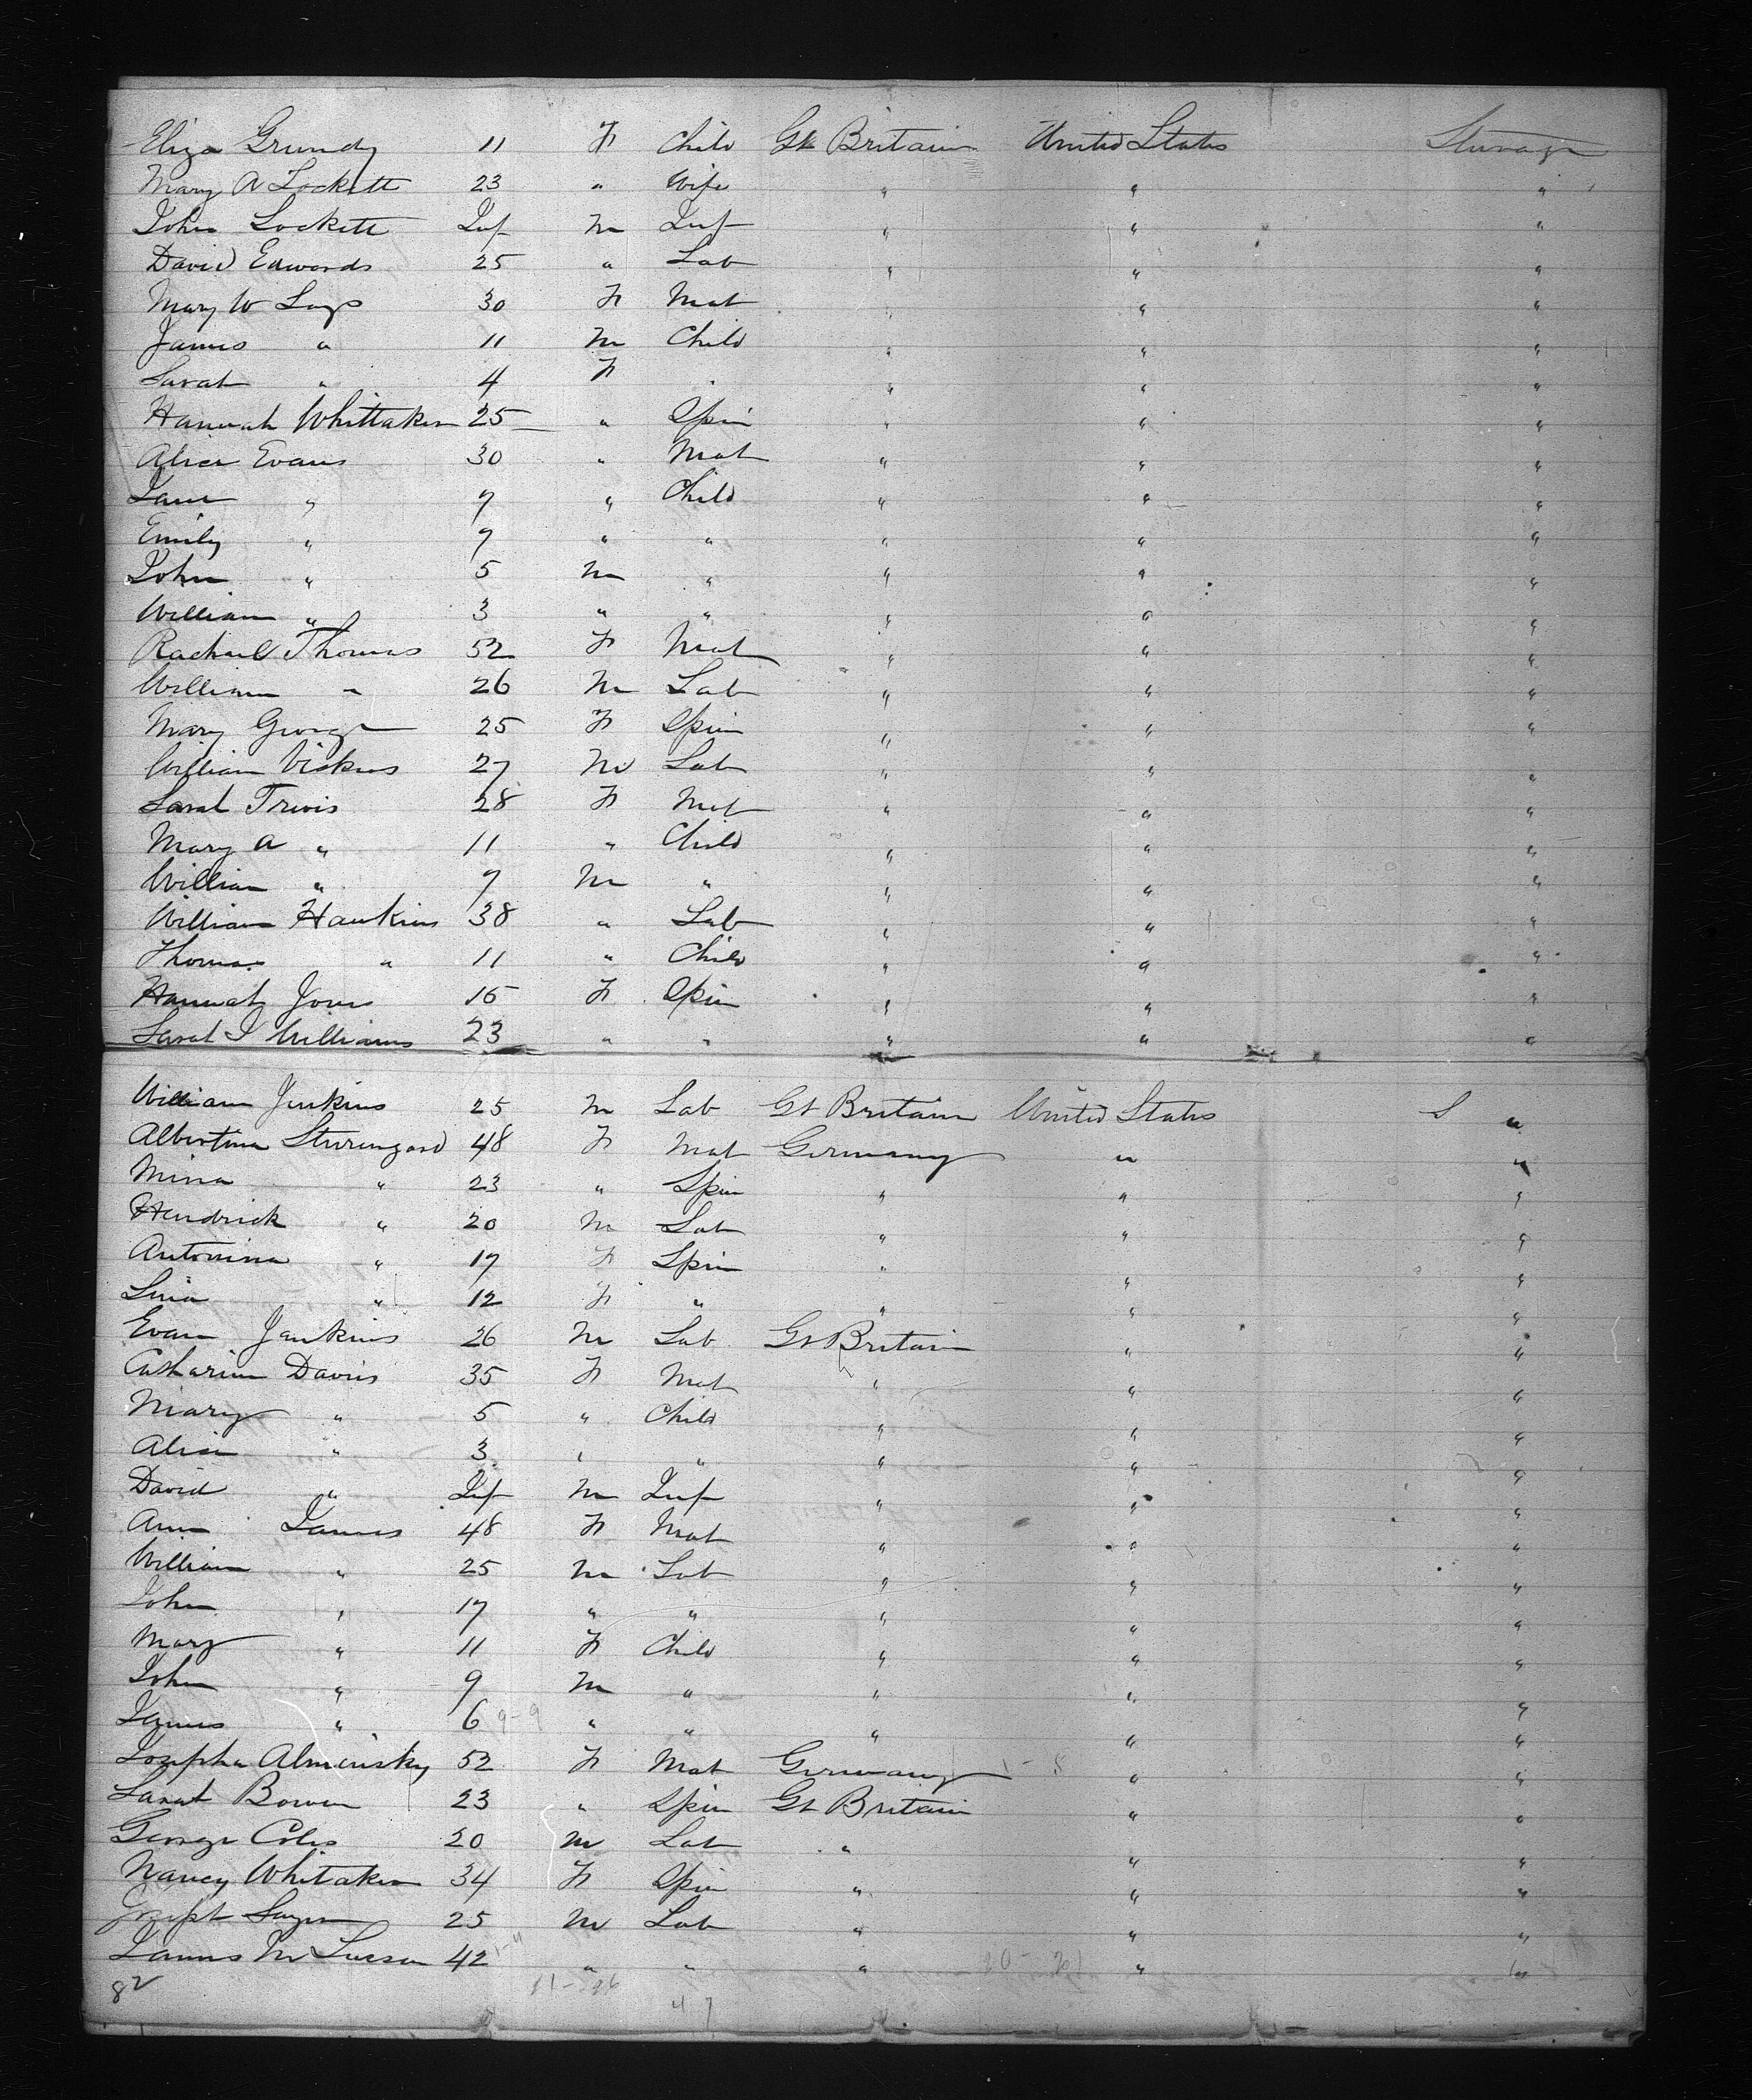 Eliza Grundy 11 F Child Gt Britain United States Steerage
Mary A Lockett 23 " Wife " " "
John Lockett Inf M Inf " " "
David Edwards 25 " Lab " " "
Mary W Lays 30 F Mat " " "
James " 11 M Child " " "
Sarah " 4 F " " " "
Hannah Whittaker 25 " Spin " " "
Alice Evans 30 " Mat " " "
Jane " 9 " Child " " "
Emily " 7 " " " " "
John " 5 M " " " "
William " 3 " " " " "
Rachael Thomas 52 F Mat " " "
William " 26 M Lab " " "
Mary George 25 F Spin " " "
William Vickers 27 M Lab " " "
Sarah Trivis 28 F Mat " " "
Mary A " 11 " Child " " "
William " 9 M " " " "
William Hawkins 38 " Lab " " "
Thomas " 11 " Child " " "
Hannah Jones 16 F Spin " " "
Sarah J Williams 23 " " " " "
William Jenkins 25 M Lab Gt Britain United States S "
Albertina 48 F Mat Germany " "
Minna " 23 " Spin " " "
Hendrick " 20 M Lab " " "
Antonina " 17 F Spin " " "
Lina " 12 F " " " "
Evan Jenkins 26 M Lab Gt Britain " "
Catharine Davis 35 F Mat " " "
Mary " 5 " Child " " "
Alice " 3 " " " " "
David " Inf M Inf " " "
Ann James 48 F Mat " " "
William " 25 M Lab " " "
John " 17 " " " " "
Mary " 11 F Child " " "
John " 9 M " " " "
James " 6 9-9 " " " " "
Josepha Almensky 52 F Mat Germany " "
Sarah Bowen 23 " Spin Gt Britain " "
George Coles 20 M Lab " " "
Nancy Whitaker 34 F Spin " " "
Joseph Sayer 25 M Lab " " "
James 42 " " " " "
82
47